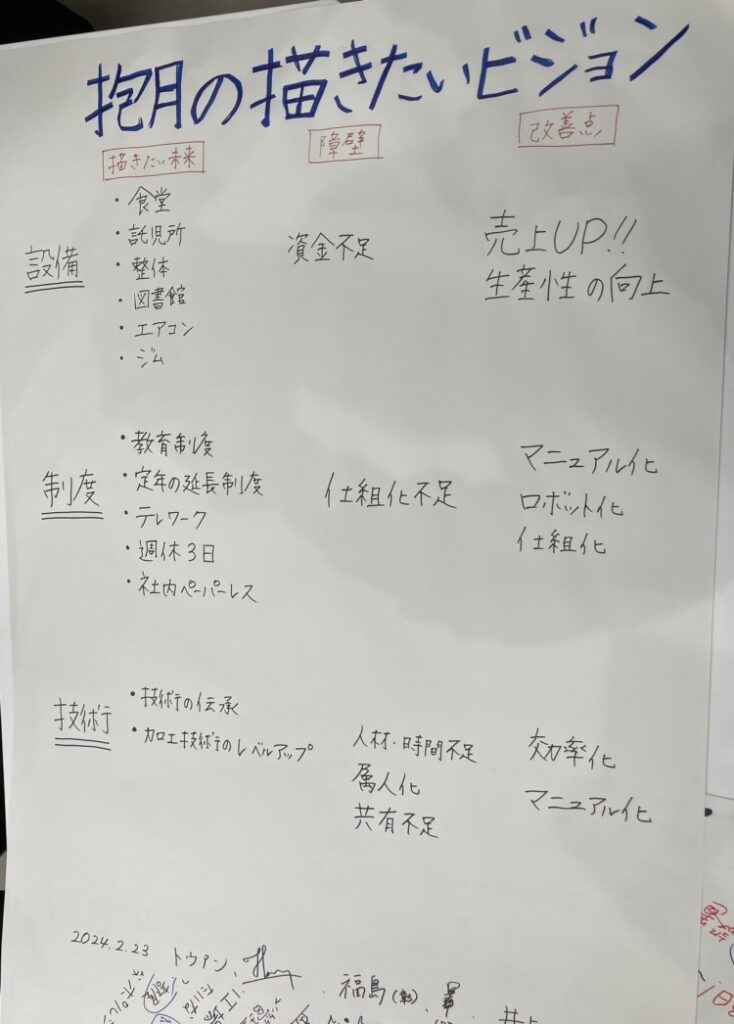 抱月の描きたいビジョン
描きたい未来 障壁 改善点
設備
・食堂
・託児所
・整体
・図書館
・エアコン
・ジム
資金不足
売上UP!!
生産性の向上
制度
・教育制度
・定年の延長制度
・テレワーク
・週休3日
・社内ペーパーレス
仕組化不足
マニュアル化
ロボット化
仕組化
技術
・技術の伝承
・加工技術のレベルアップ
人材・時間不足
属人化
共有不足
効率化
マニュアル化
2024.2.23 トゥアン、 福島(彰)、 井上